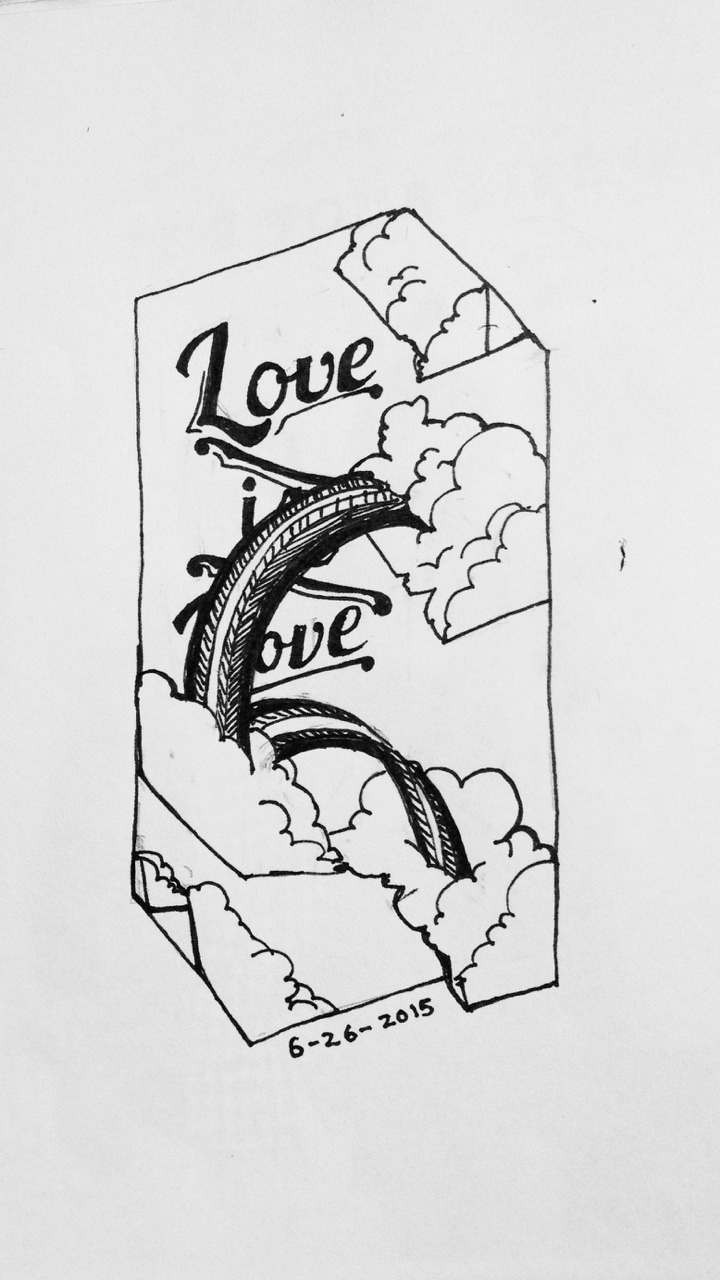 Love
is
Love
6-26-2015